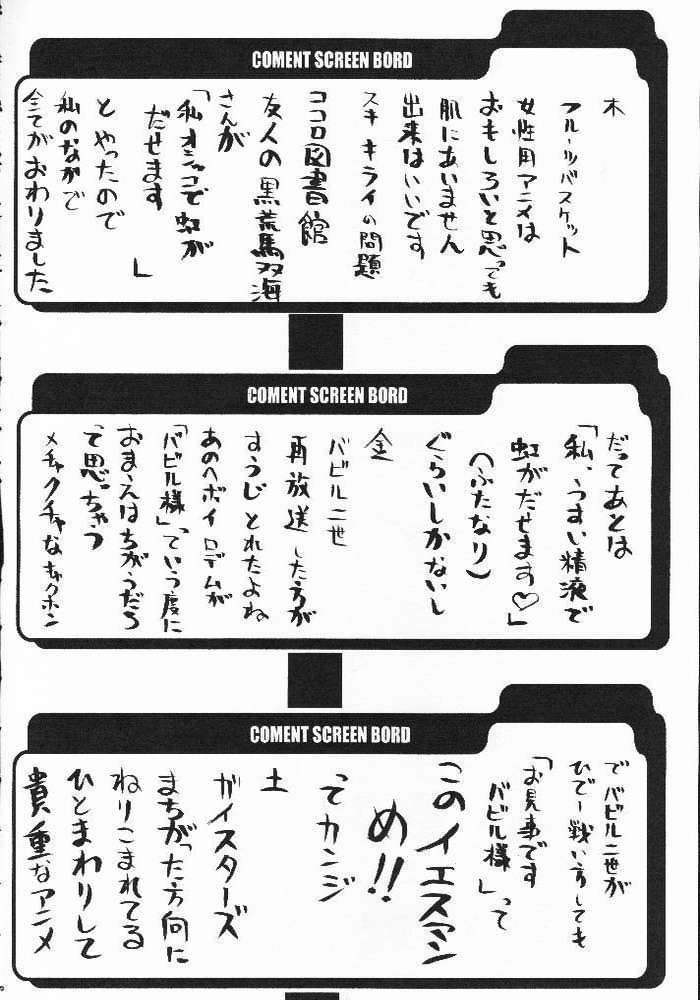 COMENT SCREEN BORD
木
フルーツバスケット
女性用アニメは
おもしろいと思っても
肌にあいません
出来はいいです
スキ キライの問題
ココロ図書館
友人の黒荒馬双海
さんが
「私オシッコで虹が
だせます
」
とやったので
私のなかで
全てがおわりました
COMENT SCREEN BORD
だってあとは
「私、うすい精液で
虹がだせます♡」
(ふたなり)
ぐらいしかないし
金
バビルニ世
再放送した方が
すうじとれたよね
あのヘボイロデムが
「バビル様」っていう度に
おまえはちがうだろ
って思っちゃう
メチャクチャなキャクホン
COMENT SCREEN BORD
でバビルニ世が
ひでー戦い方しても
「お見事です
バビル様」って
このイエスマン
め!!
ってカンジ
土
ガイスターズ
まちがった方向に
ねりこまれてる
ひとまわりして
貴重なアニメ